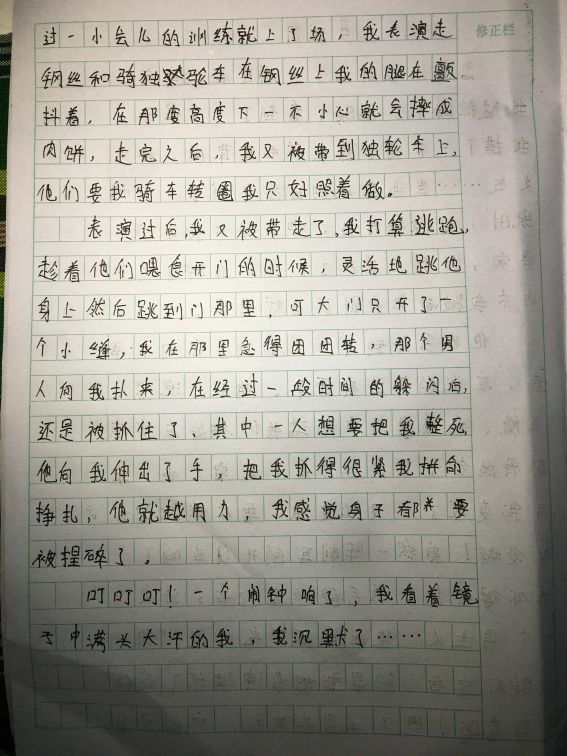 修正栏
过一小会儿的训练就上了场，我表演走
钢丝和骑独轮车在钢丝上我的腿在颤
抖着，在那度高度下一不小心就会摔成
肉饼，走完之后，我又被带到独轮车上，
他们要我骑车转圈我只好照着做。
表演过后，我又被带走了，我打算逃跑，
趁着他们喂食开门的时候，灵活地跳他
身上然后跳到门那里，可大门只开了一
个小缝，我在那里急得团团转，那个男
人向我扑来，在经过一段时间的躲闪后，
还是被抓住了、其中一人想要把我整死，
他向我伸出了手，把我抓得很紧我拼命
挣扎，他就越用力，我感觉身子都要
被捏碎了。
叮叮叮！一个闹钟响了，我看着镜
子中满头大汗的我，我沉默了……